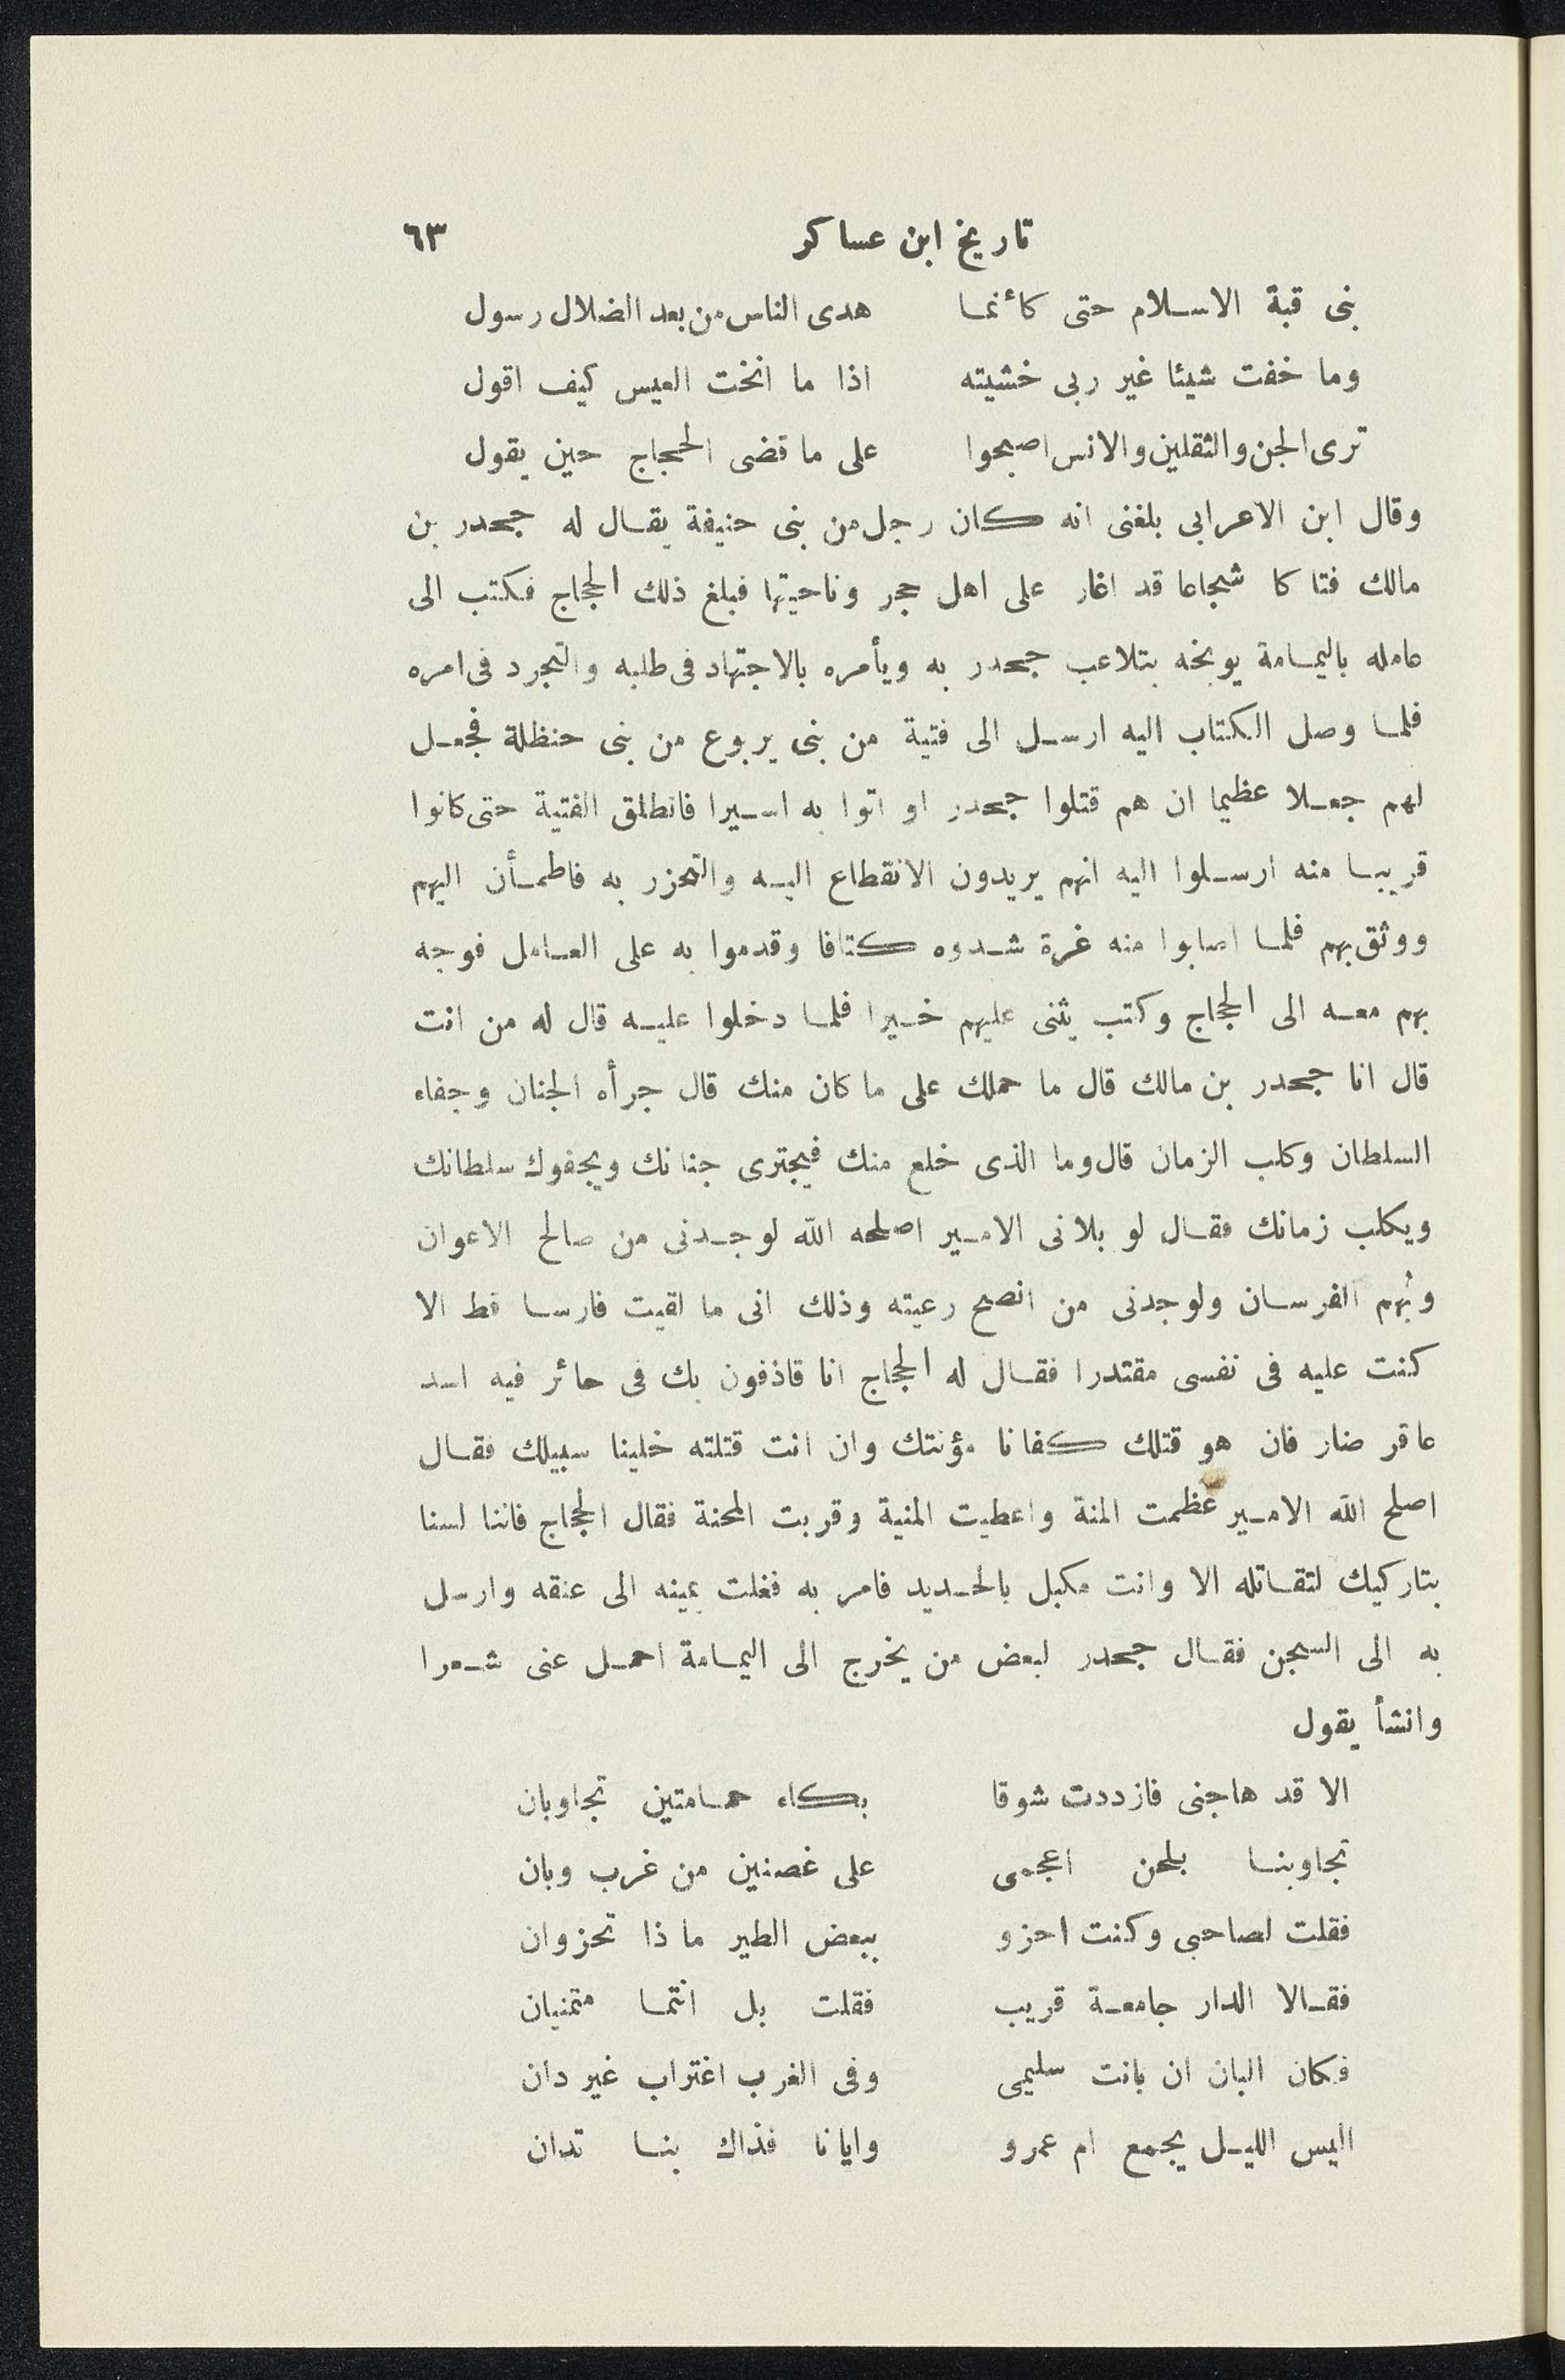 تاريخ ابن عساكر ٦٣
بنى قبة الاسلام حتى كأنما هدى الناس من بعد الضلال رسول
وما خفت شيئا غير ربى خشيته اذا ما انخت العيس كيف اقول
ترى الجن والثقلين والانس اصبحوا على ما قضى الحجاج حين يقول
وقال ابن الاعرابى بلغنى انه كان رجل من بنى حنيفة يقال له جحدر بن
مالك فتاكا شجاعا قد اغار على اهل حجر وناحيتها فبلغ ذلك الحجاج فكتب الى
عامله باليمامة يوبخه بتلاعب جحدر به ويأمره بالاجتهاد فى طلبه والتجرد فى امره
فلما وصل الكتاب اليه ارسل الى فتية من بنى يربوع من بنى حنظلة فجعل
لهم جعلا عظيما ان هم قتلوا جحدر او اتوا به اسيرا فانطلق الفتية حتى كانوا
قريبا منه ارسلوا اليه انهم يريدون الانقطاع اليه والتحزر به فاطمأن اليهم
ووثق بهم فلما اصابوا منه غرة شدوه كتافا وقدموا به على العامل فوجه
بهم معه الى الحجاج وكتب يثنى عليهم خيرا فلما دخلوا عليه قال له من انت
قال انا جحدر بن مالك قال ما حملك على ما كان منك قال جرأه الجنان وجفاء
السلطان وكلب الزمان قال وما الذى خلع منك فيجترى جنانك ويجفوك سلطانك
ويكلب زمانك فقال لو بلانى الامير اصلحه الله لوجدنى من صالح الاعوان
وبُهم الفرسان ولوجدنى من انصح رعيته وذلك انى ما لقيت فارسا قط الا
كنت عليه فى نفسى مقتدرا فقال له الحجاج انا قاذفون بك فى حائر فيه اسد
عاقر ضار فان هو قتلك كفانا مؤنتك وان انت قتلته خلينا سبيلك فقال
اصلح الله الامير عظمت المنة واعطيت المنية وقربت المحنة فقال الحجاج فاننا لسنا
بتاركيك لتقاتله الا وانت مكبل بالحديد فامر به فغلت يمينه الى عنقه وارسل
به الى السجن فقال جحدر لبعض من يخرج الى اليمامة احمل عنى شعرا
وانشأ يقول
الا قد هاجنى فازددت شوقا بكاء حمامتين تجاوبان
تجاوبنا بلحن اعجمى على غصنين من غرب وبان
فقلت لصاحبى وكنت احزو ببعض الطير ماذا تحزوان
فقالا الدار جامعة قريب فقلت بل انتما متمنيان
فكان البان ان بانت سليمى وفى الغرب اغتراب غير دان
اليس الليل يجمع ام عمرو وايانا فذاك بنا تدان